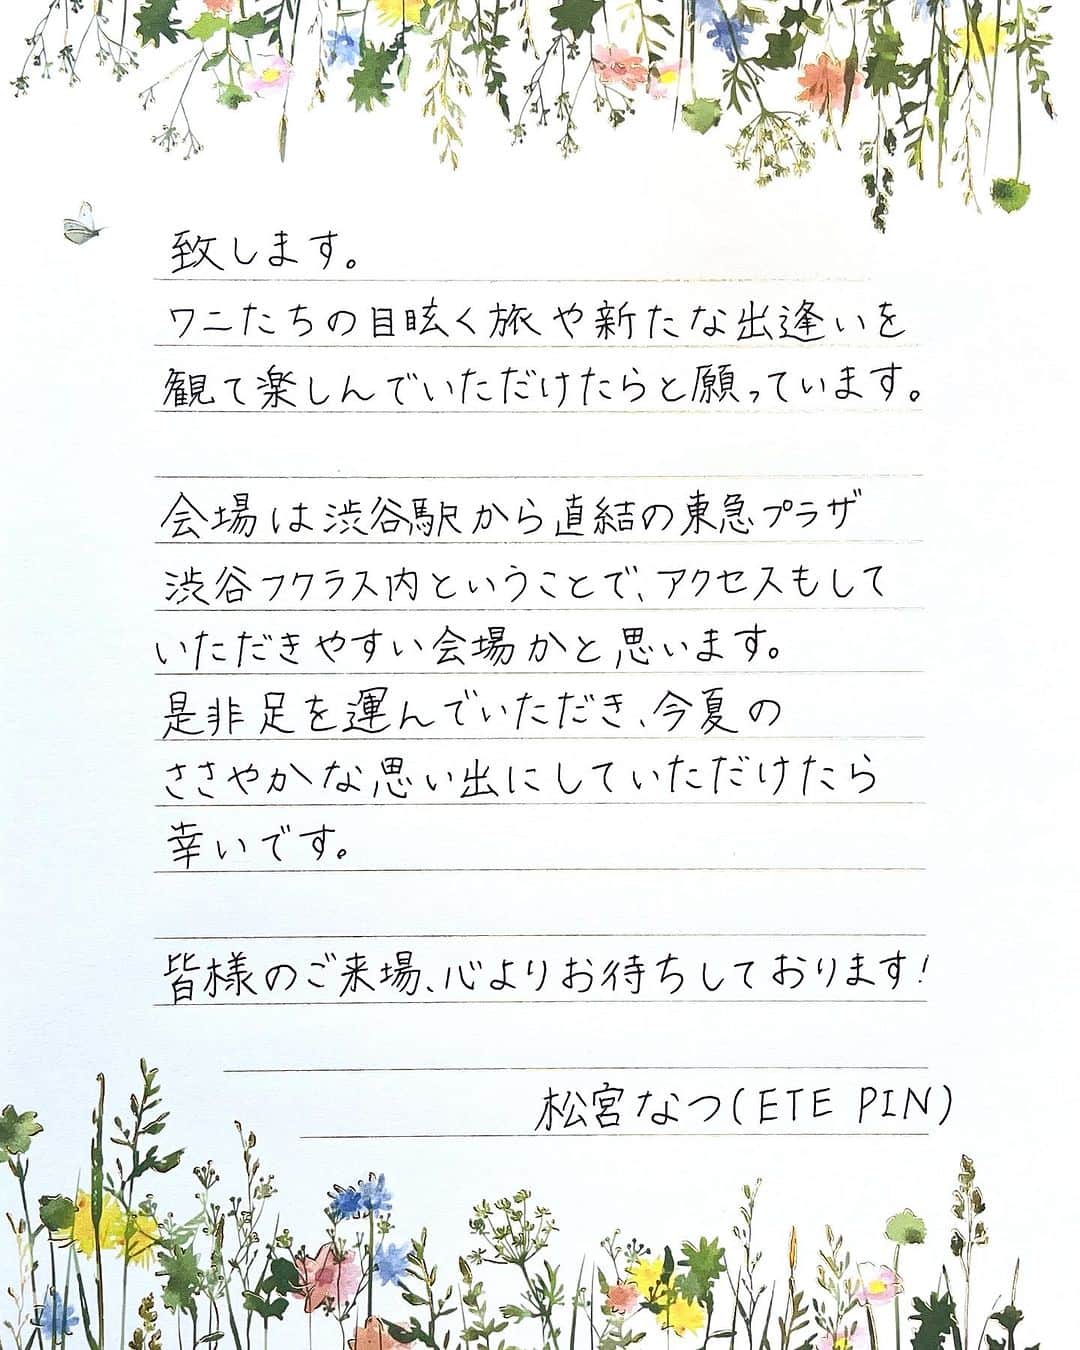 致します。
ワニたちの目眩く旅や新たな出逢いを
観て楽しんでいただけたらと願っています。
会場は渋谷駅から直結の東急プラザ
渋谷フクラス内ということで、アクセスもして
いただきやすい会場かと思います。
是非足を運んでいただき、今夏の
ささやかな思い出にしていただけたら
幸いです。
皆様のご来場、心よりお待ちしております!
松宮なつ(ETE PIN)